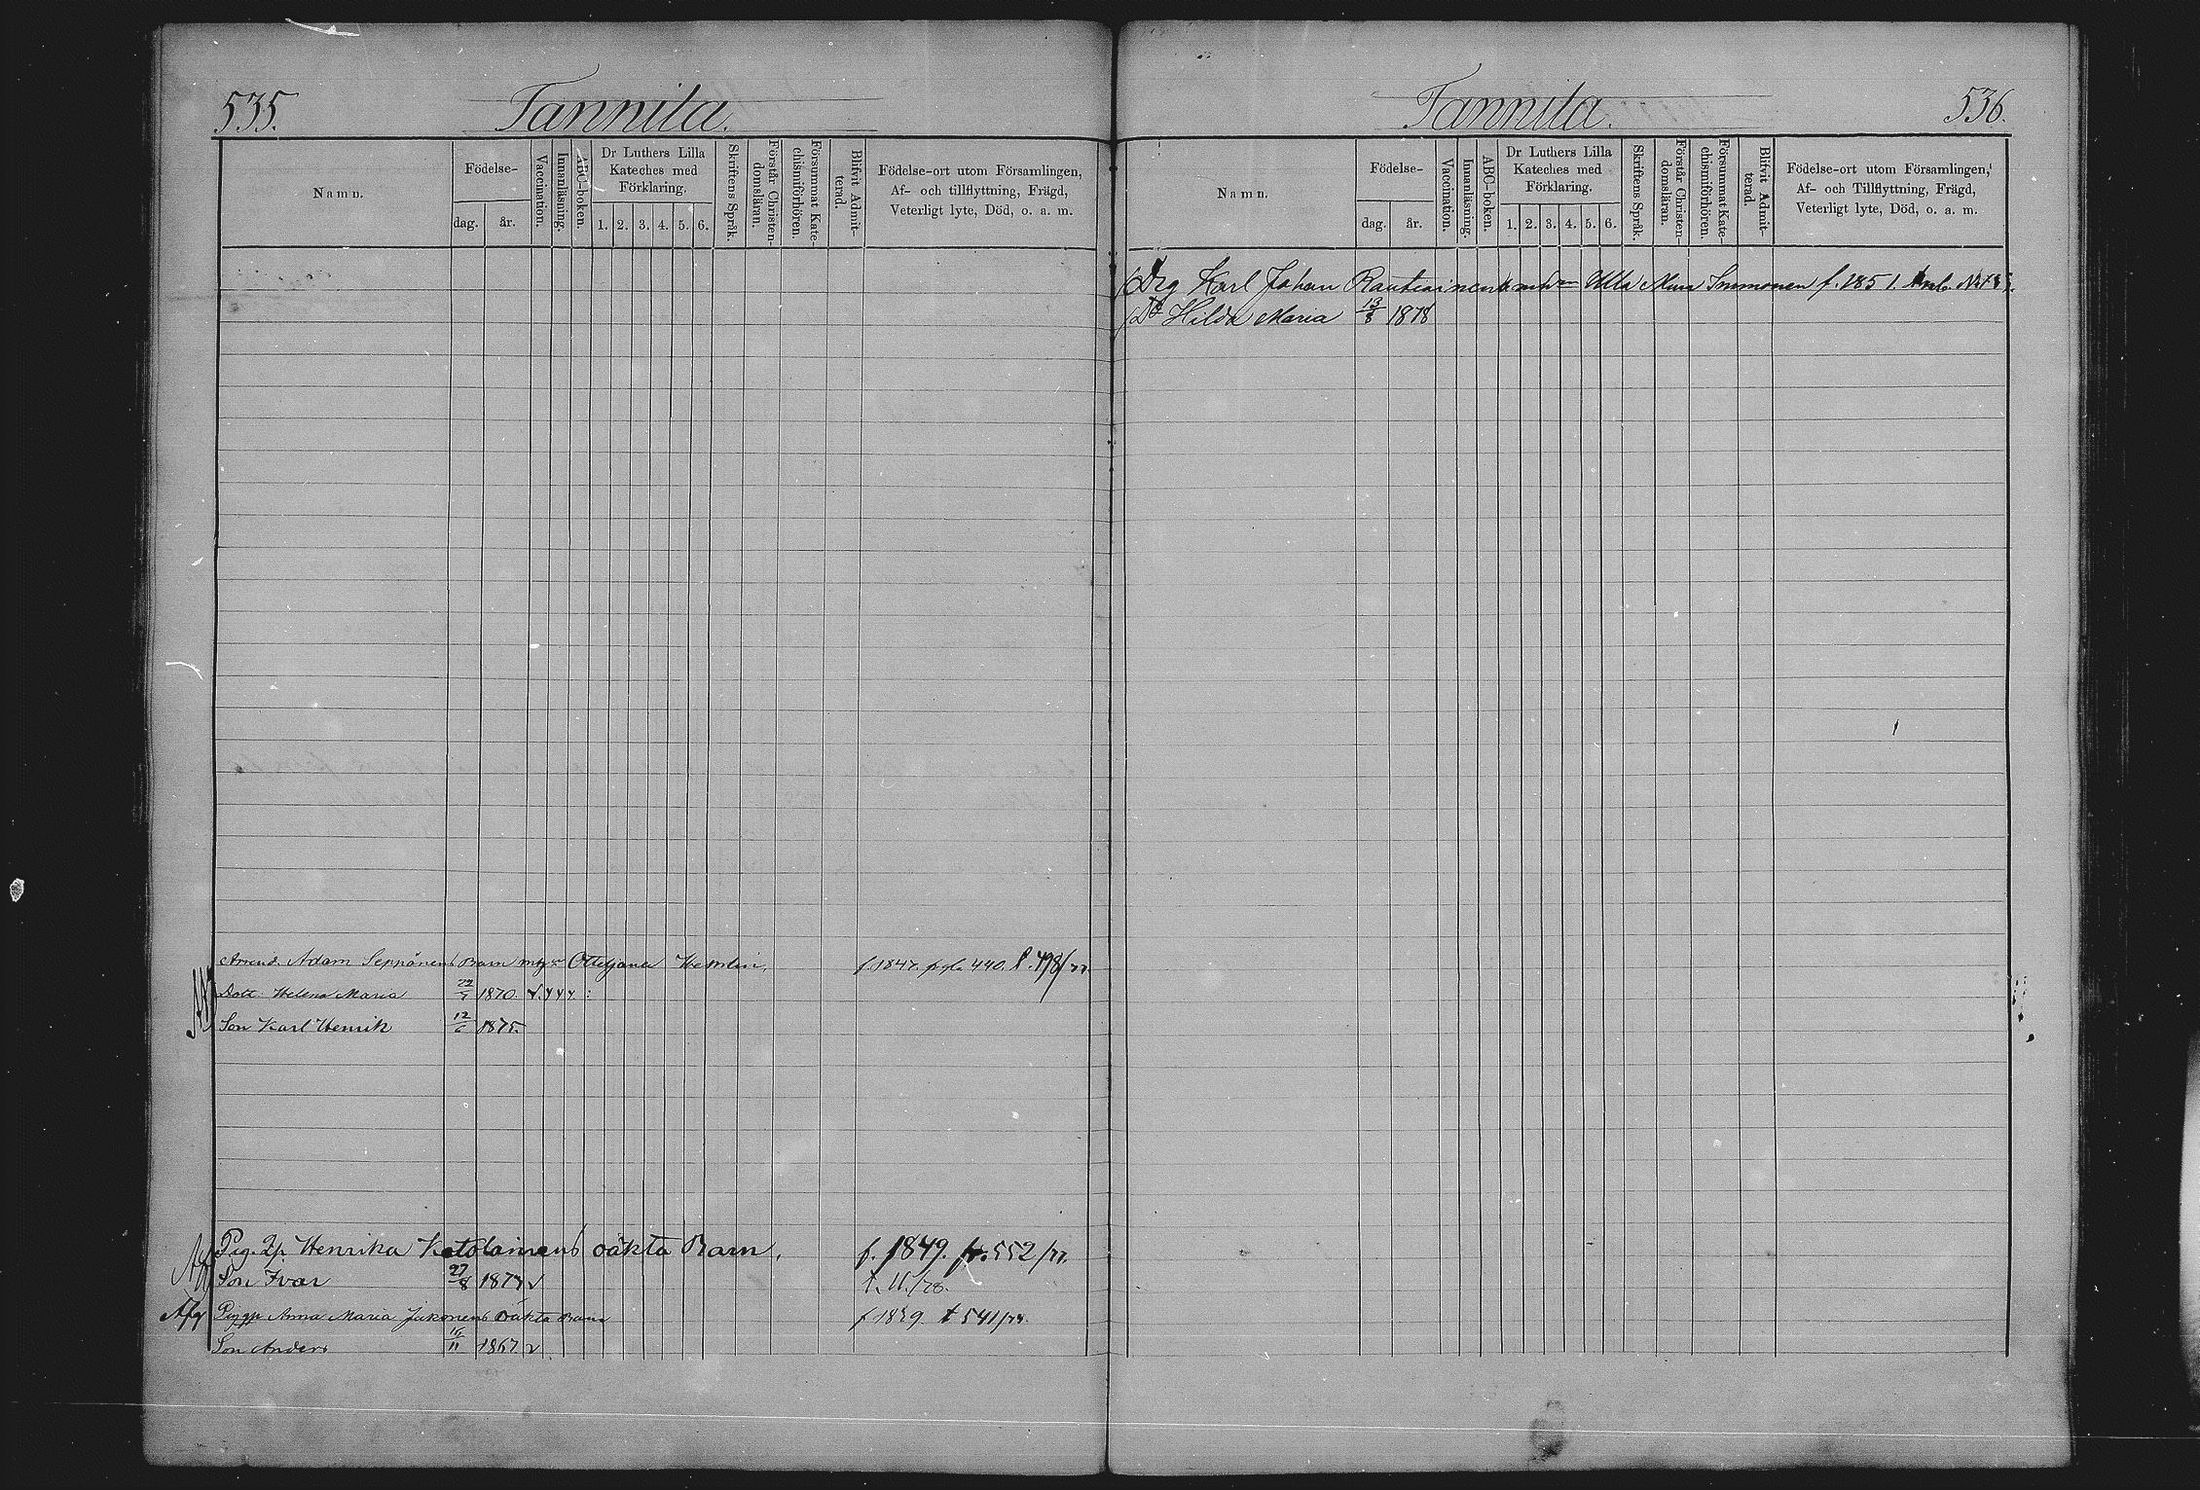 535. Tannila.
Namn. Födelse- dag. år. Vaccination. Innanläsning. ABC-boken. Dr Luthers Lilla Kateches med Förklaring. 1. 2. 3. 4. 5. 6. Skriftens Språk. Förstår Christendomsläran. Försummat Katechismiförhören. Blifvit Admitterad. Födelse-ort utom Församlingen, Af- och tillflyttning, Frägd, Veterligt lyte, Död, o. a. m.
Adam Seppänens Barn Hemlin f. 1847. 440. 498/77
Dott. Helena Maria 1870.
Son Karl Henrik 12/6 1875.
Pig. Henrika Ketolainens oäkta Barn. f. 1849. 552/77.
Son Ivar 27/8 1877
Anna Maria oäkta Barn 541/
Son Anders 1867
Tannila. 536.
Namn. Födelse- dag. år. Vaccination. Innanläsning. ABC-boken. Dr Luthers Lilla Kateches med Förklaring. 1. 2. 3. 4. 5. 6. Skriftens Språk. Förstår Christendomsläran. Försummat Katechismiförhören. Blifvit Admitterad. Födelse-ort utom Församlingen, Af- och Tillflyttning, Frägd, Veterligt lyte, Död, o. a. m.
Drg Karl Johan Rautiainens Ulla Immonen f. 1851.
Hilda Maria 13/8 1878